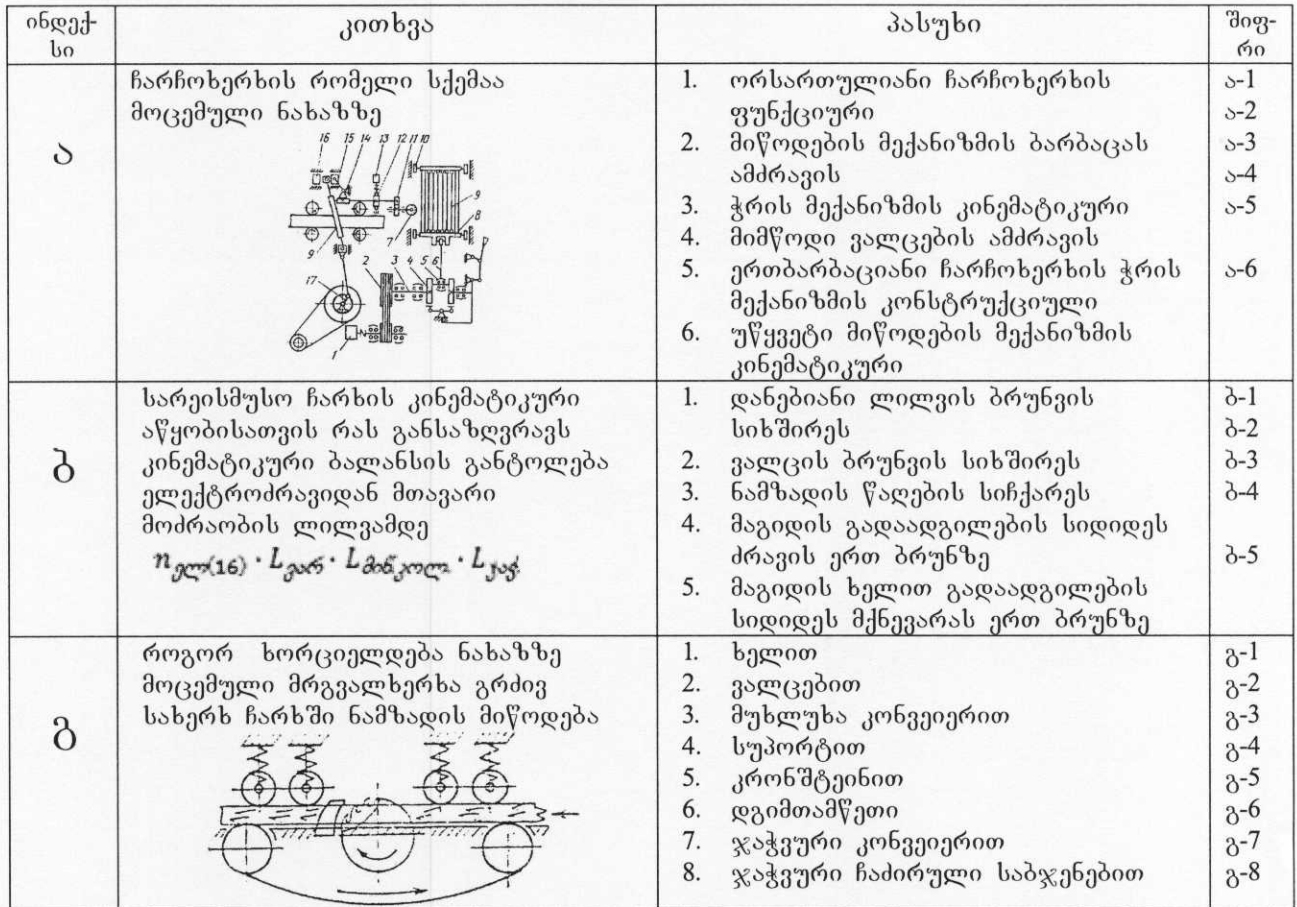 ინდექ-
სი
კითხვა
პასუხი
შიფ-
რი
ა
ჩარჩოხერხის რომელი სქემაა
მოცემული ნახაზზე
16 15 14 13 12 11 10
9
8
7
9
2 3 4 5 6
17
1
1. ორსართულიანი ჩარჩოხერხის
ფუნქციური
2. მიწოდების მექანიზმის ბარბაცას
ამძრავის
3. ჭრის მექანიზმის კინემატიკური
4. მიმწოდი ვალცების ამძრავის
5. ერთბარბაციანი ჩარჩოხერხის ჭრის
მექანიზმის კონსტრუქციული
6. უწყვეტი მიწოდების მექანიზმის
კინემატიკური
ა-1
ა-2
ა-3
ა-4
ა-5
ა-6
ბ
სარეისმუსო ჩარხის კინემატიკური
აწყობისათვის რას განსაზღვრავს
კინემატიკური ბალანსის განტოლება
ელექტროძრავიდან მთავარი
მოძრაობის ლილვამდე
n ელ(16) · L ვარ · L მინ.კოლ. · L ჯაჭ.
1. დანებიანი ლილვის ბრუნვის
სიხშირეს
2. ვალცის ბრუნვის სიხშირეს
3. ნამზადის წაღების სიჩქარეს
4. მაგიდის გადაადგილების სიდიდეს
ძრავის ერთ ბრუნზე
5. მაგიდის ხელით გადაადგილების
სიდიდეს მქნევარას ერთ ბრუნზე
ბ-1
ბ-2
ბ-3
ბ-4
ბ-5
გ
როგორ ხორციელდება ნახაზზე
მოცემული მრგვალხერხა გრძივ
სახერხ ჩარხში ნამზადის მიწოდება
1. ხელით
2. ვალცებით
3. მუხლუხა კონვეიერით
4. სუპორტით
5. კრონშტეინით
6. დგიმთამწეთი
7. ჯაჭვური კონვეიერით
8. ჯაჭვური ჩაძირული საბჯენებით
გ-1
გ-2
გ-3
გ-4
გ-5
გ-6
გ-7
გ-8